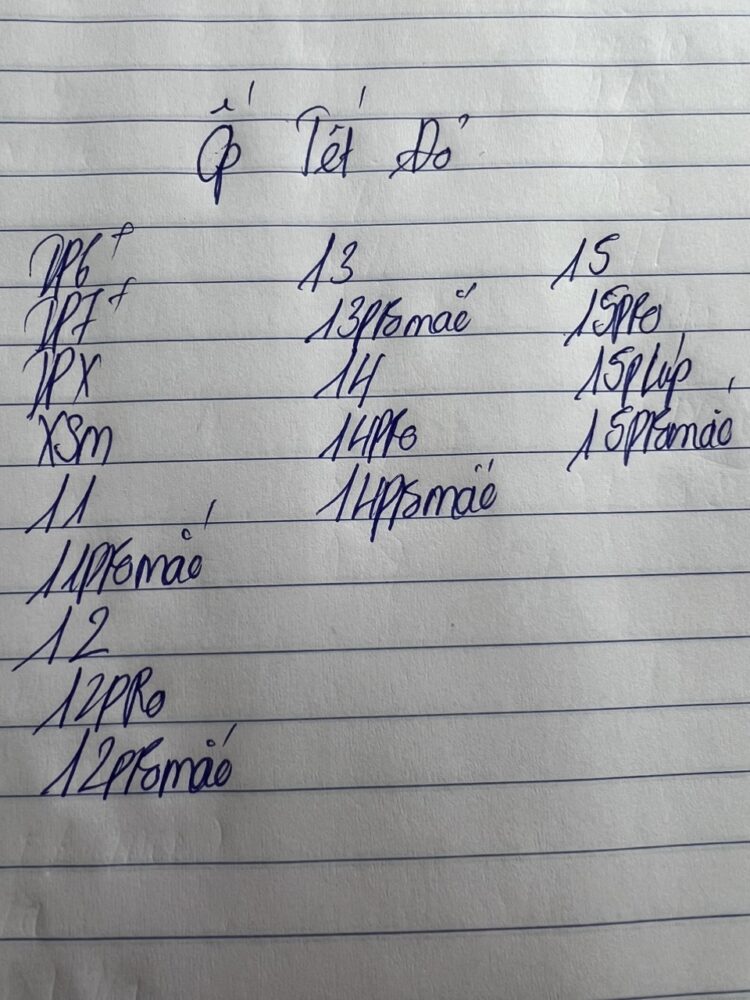 Ốp Tết Đỏ
IP6+
IP7+
IPX
XSm
11
11Promắc
12
12PRo
12Promắc
13
13Promắc
14
14Pro
14Promắc
15
15Pro
15plúp
15Promắc